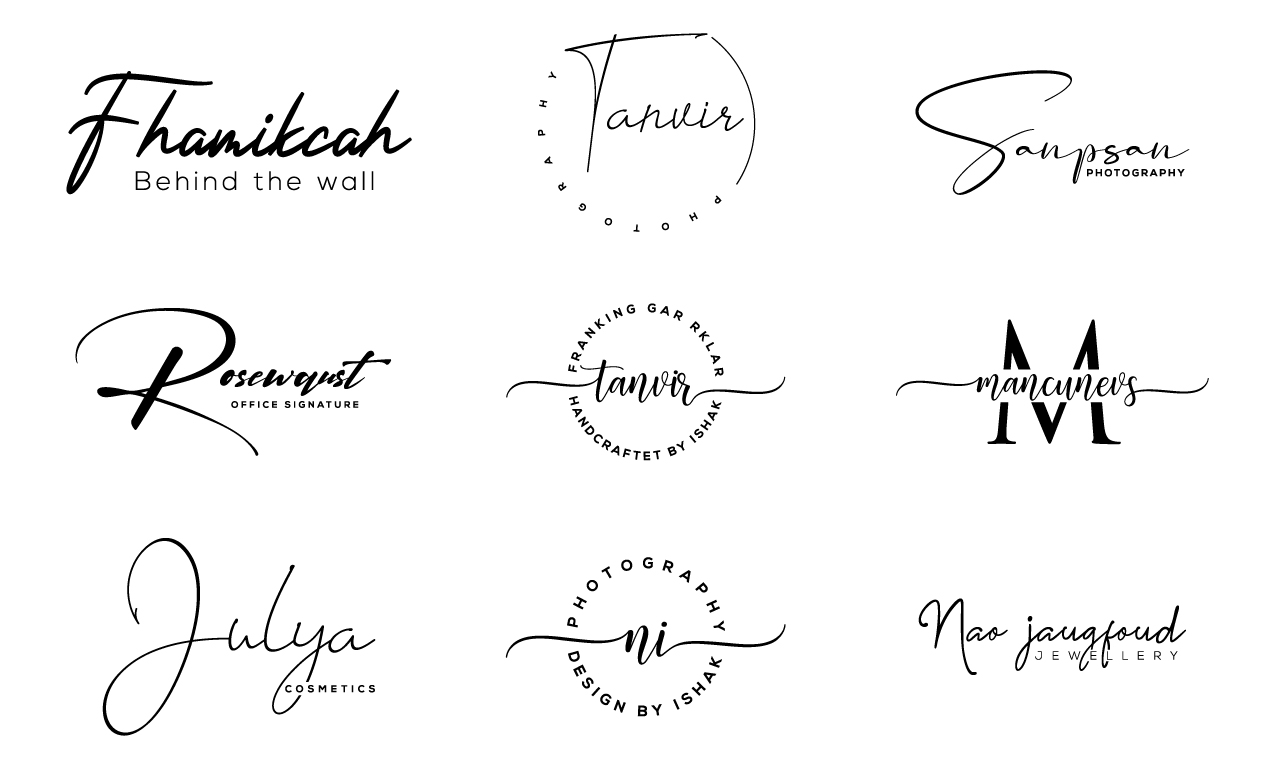 Fhamikcah
Behind the wall
Tanvir
PHOTOGRAPHY
Sanpsan
PHOTOGRAPHY
Rosewqust
OFFICE SIGNATURE
FRANKING GAR RKLAR
tanvir
HANDCRAFTET BY ISHAK
M
mancunevs
Julya
COSMETICS
PHOTOGRAPHY
ni
DESIGN BY ISHAK
Nao jauqfoud
JEWELLERY